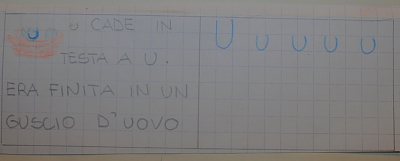 U CADE IN
TESTA A U.
ERA FINITA IN UN
GUSCIO D'UOVO
U U U U U